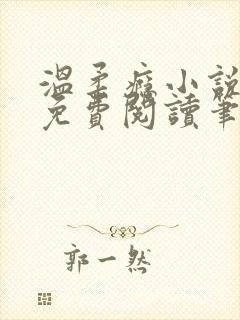 溫柔癮小說
免費閱讀筆
郭一然